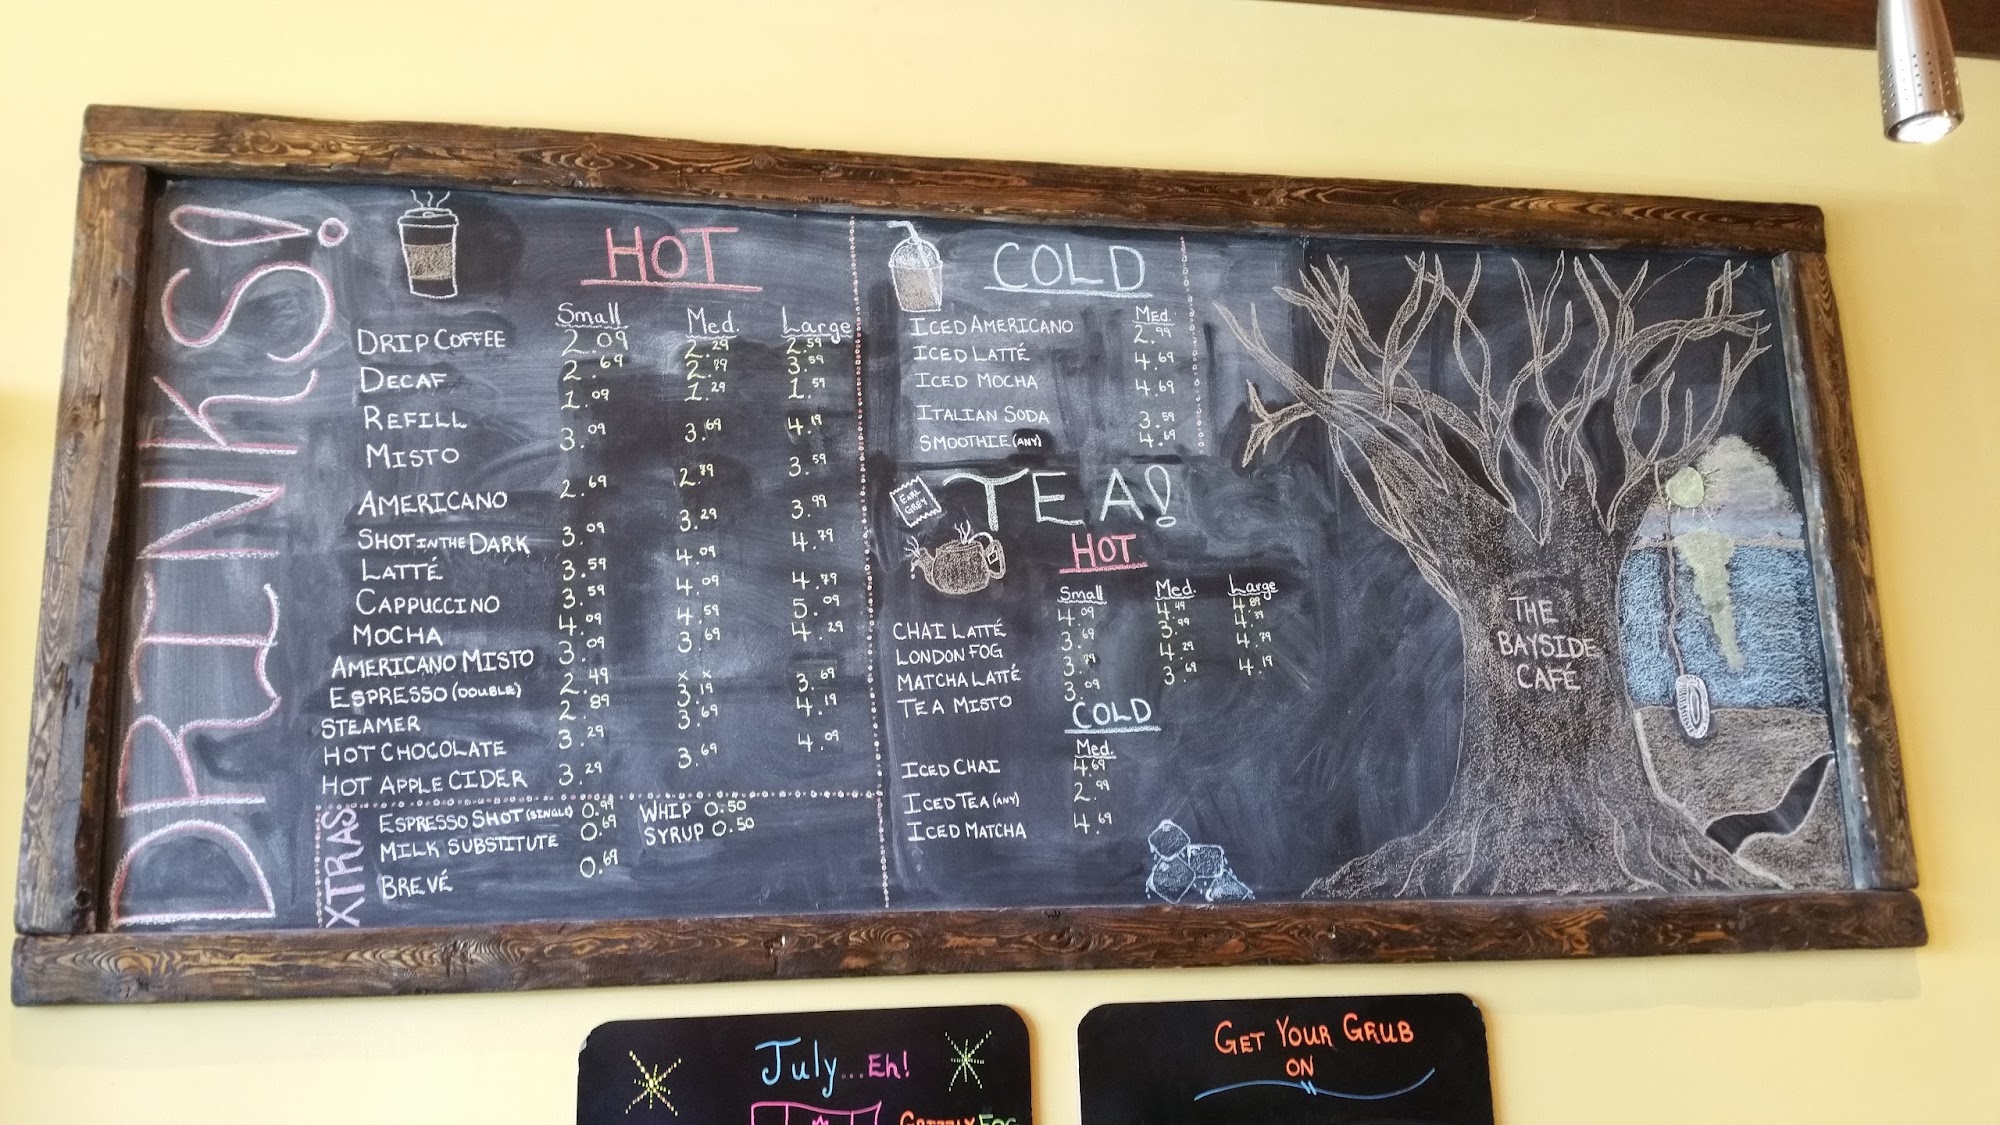 DRINKS!
HOT
Small Med. Large
DRIP COFFEE 2.09 2.29 2.59
DECAF 2.69 2.79 3.59
REFILL 1.09 1.29 1.59
MISTO 3.09 3.69 4.19
AMERICANO 2.69 2.79 3.59
SHOT IN THE DARK 3.09 3.29 3.99
LATTÉ 3.59 4.09 4.79
CAPPUCCINO 3.59 4.09 4.79
MOCHA 4.09 4.59 5.09
AMERICANO MISTO 3.09 3.69 4.29
ESPRESSO (DOUBLE) 2.49 x x
STEAMER 2.89 3.19 3.69
HOT CHOCOLATE 3.29 3.69 4.19
HOT APPLE CIDER 3.29 3.69 4.09
XTRAS
ESPRESSO SHOT (SINGLE) 0.99
MILK SUBSTITUTE 0.69
BREVÉ 0.69
WHIP 0.50
SYRUP 0.50
COLD
MED.
ICED AMERICANO 2.99
ICED LATTÉ 4.69
ICED MOCHA 4.69
ITALIAN SODA 3.59
SMOOTHIE (ANY) 4.69
EARL
GREY
TEA!
HOT
Small Med. Large
CHAI LATTÉ 4.09 4.49 4.89
LONDON FOG 3.69 3.99 4.39
MATCHA LATTÉ 3.79 4.29 4.79
TEA MISTO 3.09 3.69 4.19
COLD
Med.
ICED CHAI 4.69
ICED TEA (ANY) 2.99
ICED MATCHA 4.69
THE
BAYSIDE
CAFÉ
July...Eh!
GRIZZLY FOG
GET YOUR GRUB
ON